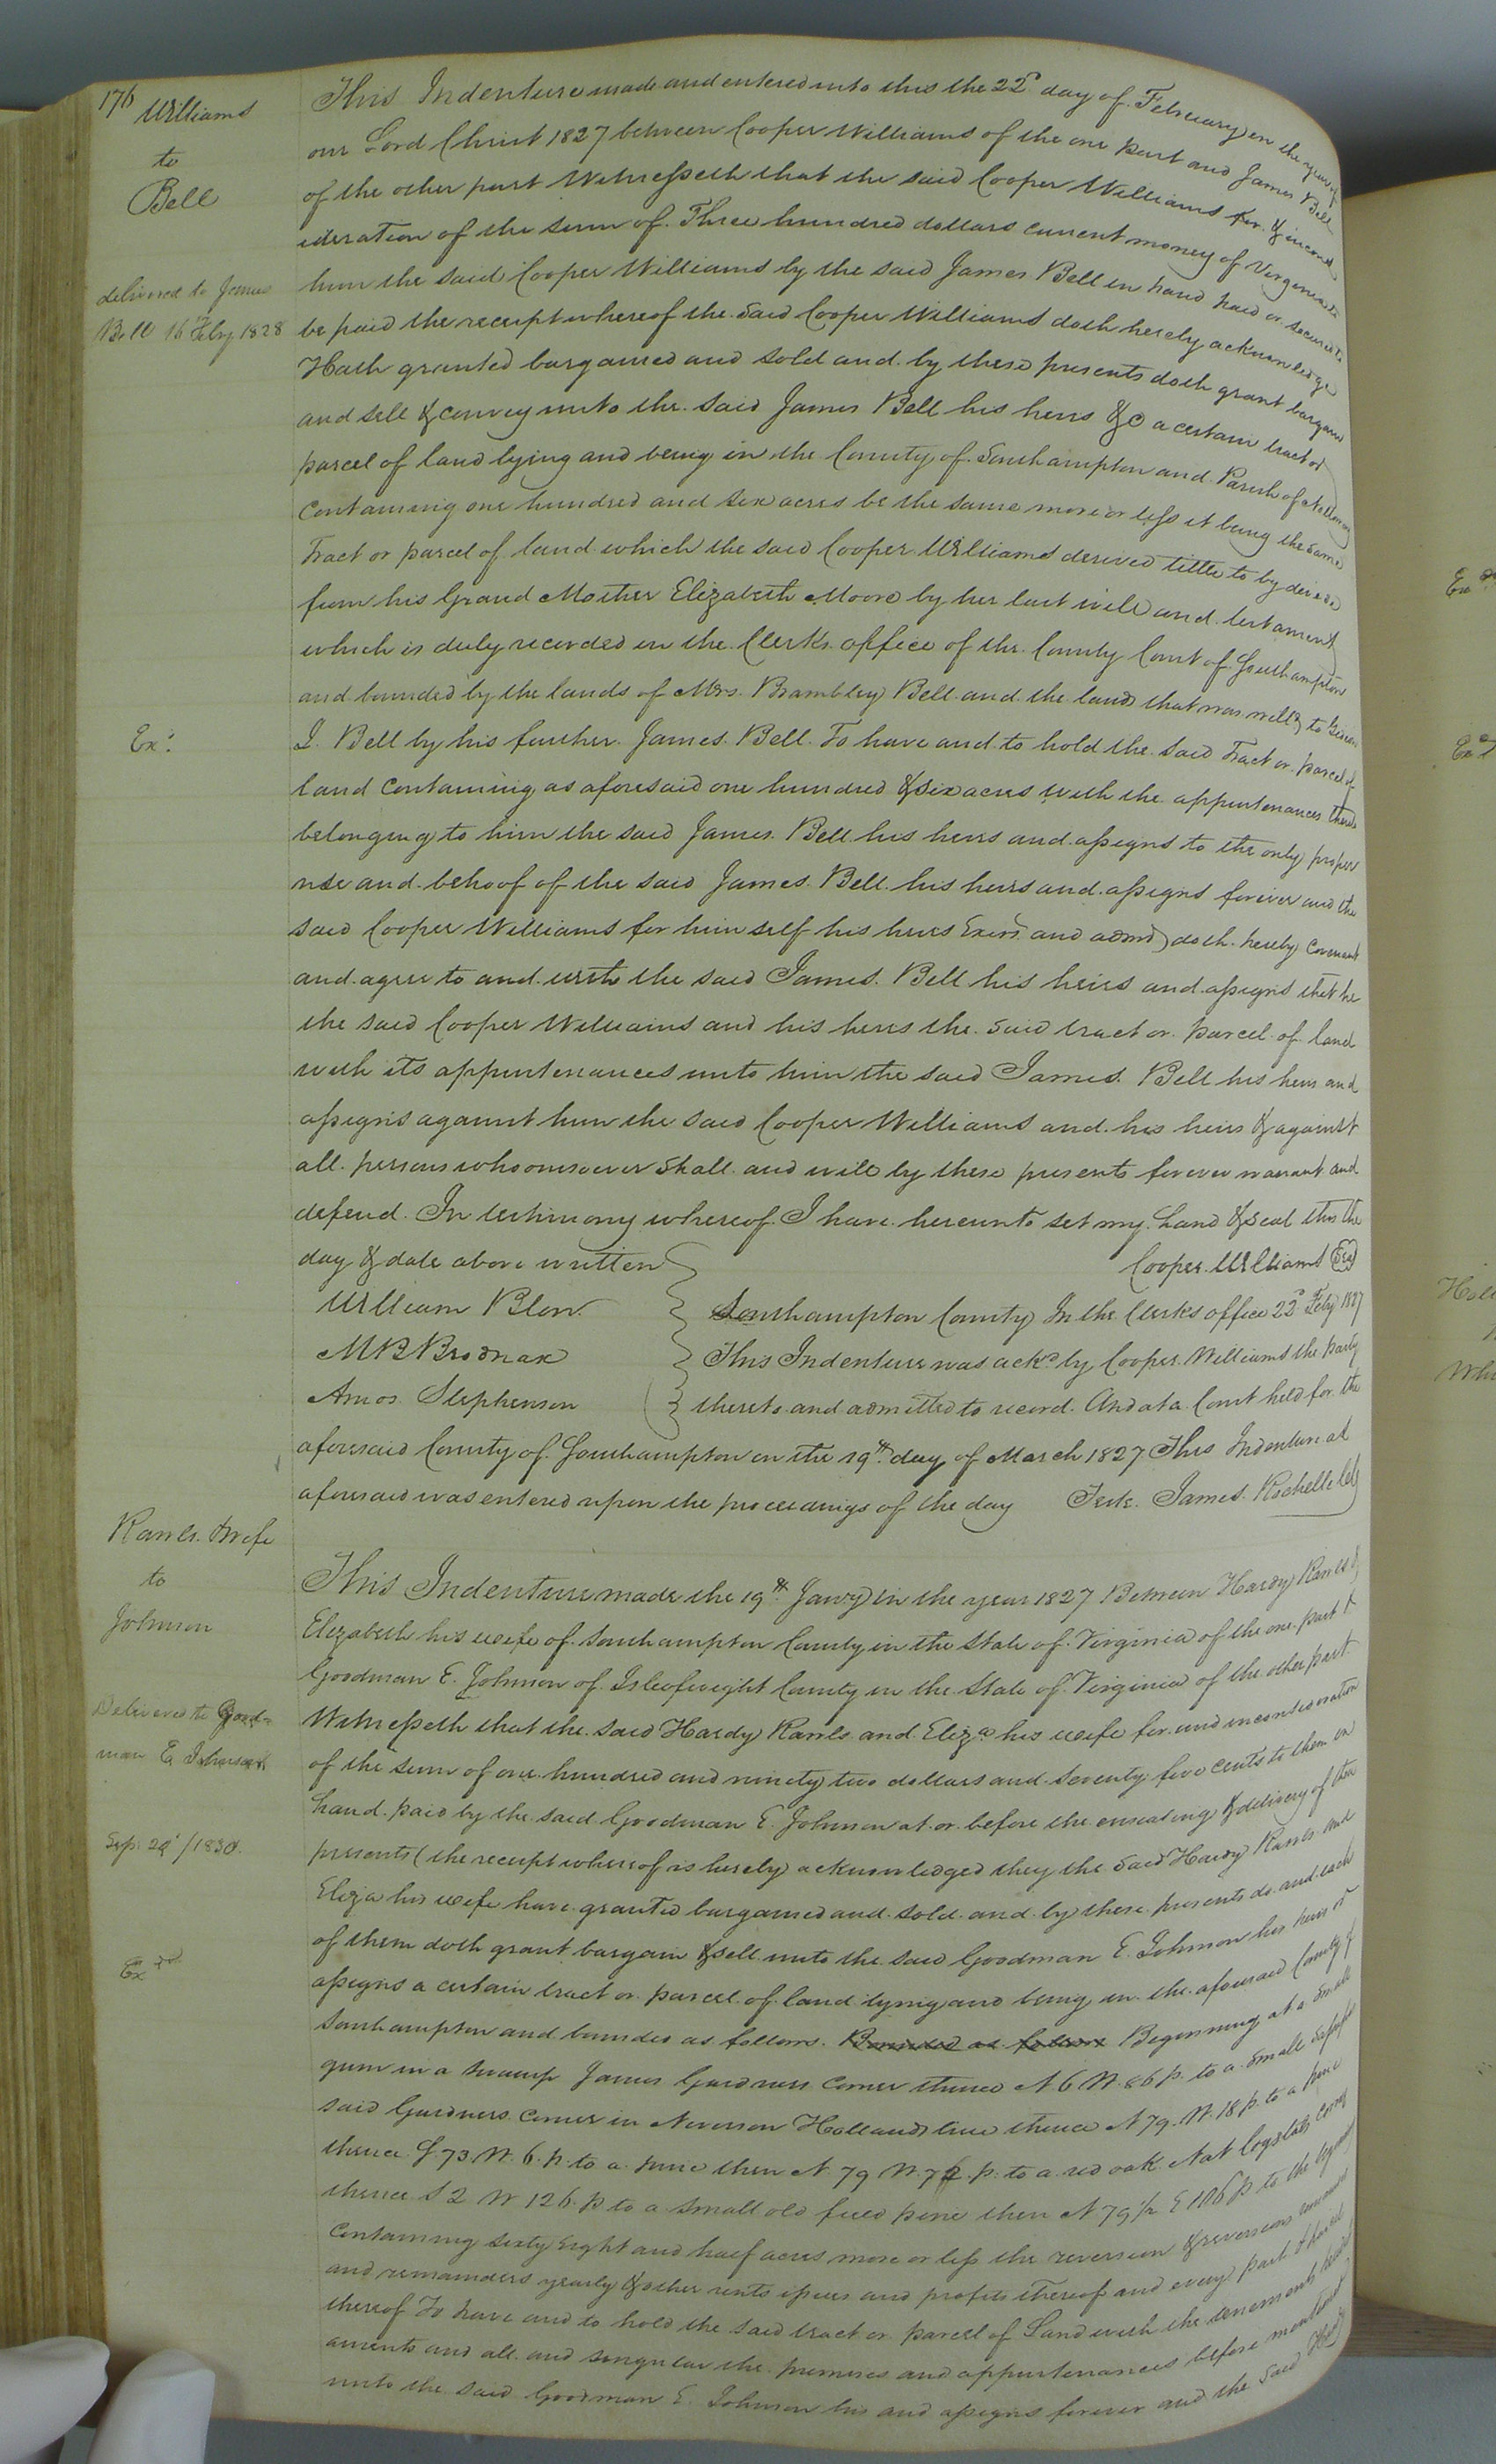 176
Williams
to
Bell
delivered to James
Bell 16 Feby 1828
Exd
This Indenture made and entered into this the 22d day of February in the year of
our Lord Christ 1827 between Cooper Williams of the one part and James Bell
of the other part Witnesseth that the said Cooper Williams for & in cons
ideration of the sum of Three hundred dollars current money of Virginia to
him the said Cooper Williams by the said James Bell in hand paid or secured to
be paid the receipt whereof the said Cooper Williams doth hereby acknowledge
Hath granted bargained and sold and by these presents doth grant bargain
and sell & convey unto the said James Bell his heirs &c a certain tract or
parcel of land lying and being in the County of Southampton and Parish of
Containing one hundred and six acres be the same more or less it being the same
Tract or parcel of land which the said Cooper Williams derived tittle to by devise
from his Grand Mother Elizabeth Moore by her last will and testament
which is duly recorded in the Clerks office of the County Court of Southampton
and bounded by the lands of Mrs. Brambley Bell and the land that was willd to
J. Bell by his father James Bell. To have and to hold the said Tract or parcel of
land Containing as aforesaid one hundred & six acres with the appurtenances thereto
belonging to him the said James Bell his heirs and assigns to the only proper
use and behoof of the said James Bell his heirs and assigns forever and the
said Cooper Williams for himself his heirs Exors and admrs doth hereby Covenant
and agree to and with the said James Bell his heirs and assigns that he
the said Cooper Williams and his heirs the said tract or parcel of land
with its appurtenances unto him the said James Bell his heirs and
assigns against him the said Cooper Williams and his heirs & against
all persons whomsoever shall and will by these presents forever warrant and
defend. In testimony whereof I have hereunto set my hand & seal this the
day & date above written
Cooper Williams Seal
William Blow
M B Brodnax
Amos Stephenson
Southampton County In the Clerks office 22d Feby 1827
This Indenture was ackd by Cooper Williams the party
thereto and admitted to record. And at a Court held for the
aforesaid County of Southampton on the 19th day of March 1827 This Indenture as
aforesaid was entered upon the proceedings of the day Teste. James Rochelle Clk
Rawls & wife
to
Johnson
Delivered to Good-
man E Johnson
Sep: 29 /1830.
Exd
This Indenture made the 19th Jany in the year 1827 Between Hardy Rawls &
Elizabeth his wife of Southampton County in the State of Virginia of the one part &
Goodman E. Johnson of Isleofwight County in the State of Virginia of the other part
Witnesseth that the said Hardy Rawls and Eliza his wife for and in consideration
of the sum of one hundred and ninety two dollars and seventy five cents to them in
hand paid by the said Goodman E. Johnson at or before the ensealing & delivery of these
presents (the receipt whereof is hereby acknowledged they the said Hardy Rawls and
Eliza his wife have granted bargained and sold and by these presents do and each
of them doth grant bargain & sell unto the said Goodman E. Johnson his heirs or
assigns a certain tract or parcel of land lying and being in the aforesaid County of
Southampton and bounded as follows. Bounded as follows Beginning at a small
gum in a swamp James Gardners corner thence N 6 W. 86 p. to a small
said Gardners corner in Neverson Hollands line thence N 79. W. 18 p. to a pine
thence S. 73. W. 6. p. to a pine then N 79 W. 72. p. to a red oak Nat
thence S 2 W 126. p to a small old field pine then N 79 1/2 E 106 p to the
Containing sixty Eight and half acres more or less the reversion & reversions
and remainders yearly & other rents issues and profits thereof and every part & parcel
thereof To have and to hold the said tract or parcel of Land with the tenements heredit
aments and all and singular the premises and appurtenances before mentioned
unto the said Goodman E. Johnson his and assigns forever and the said Hardy